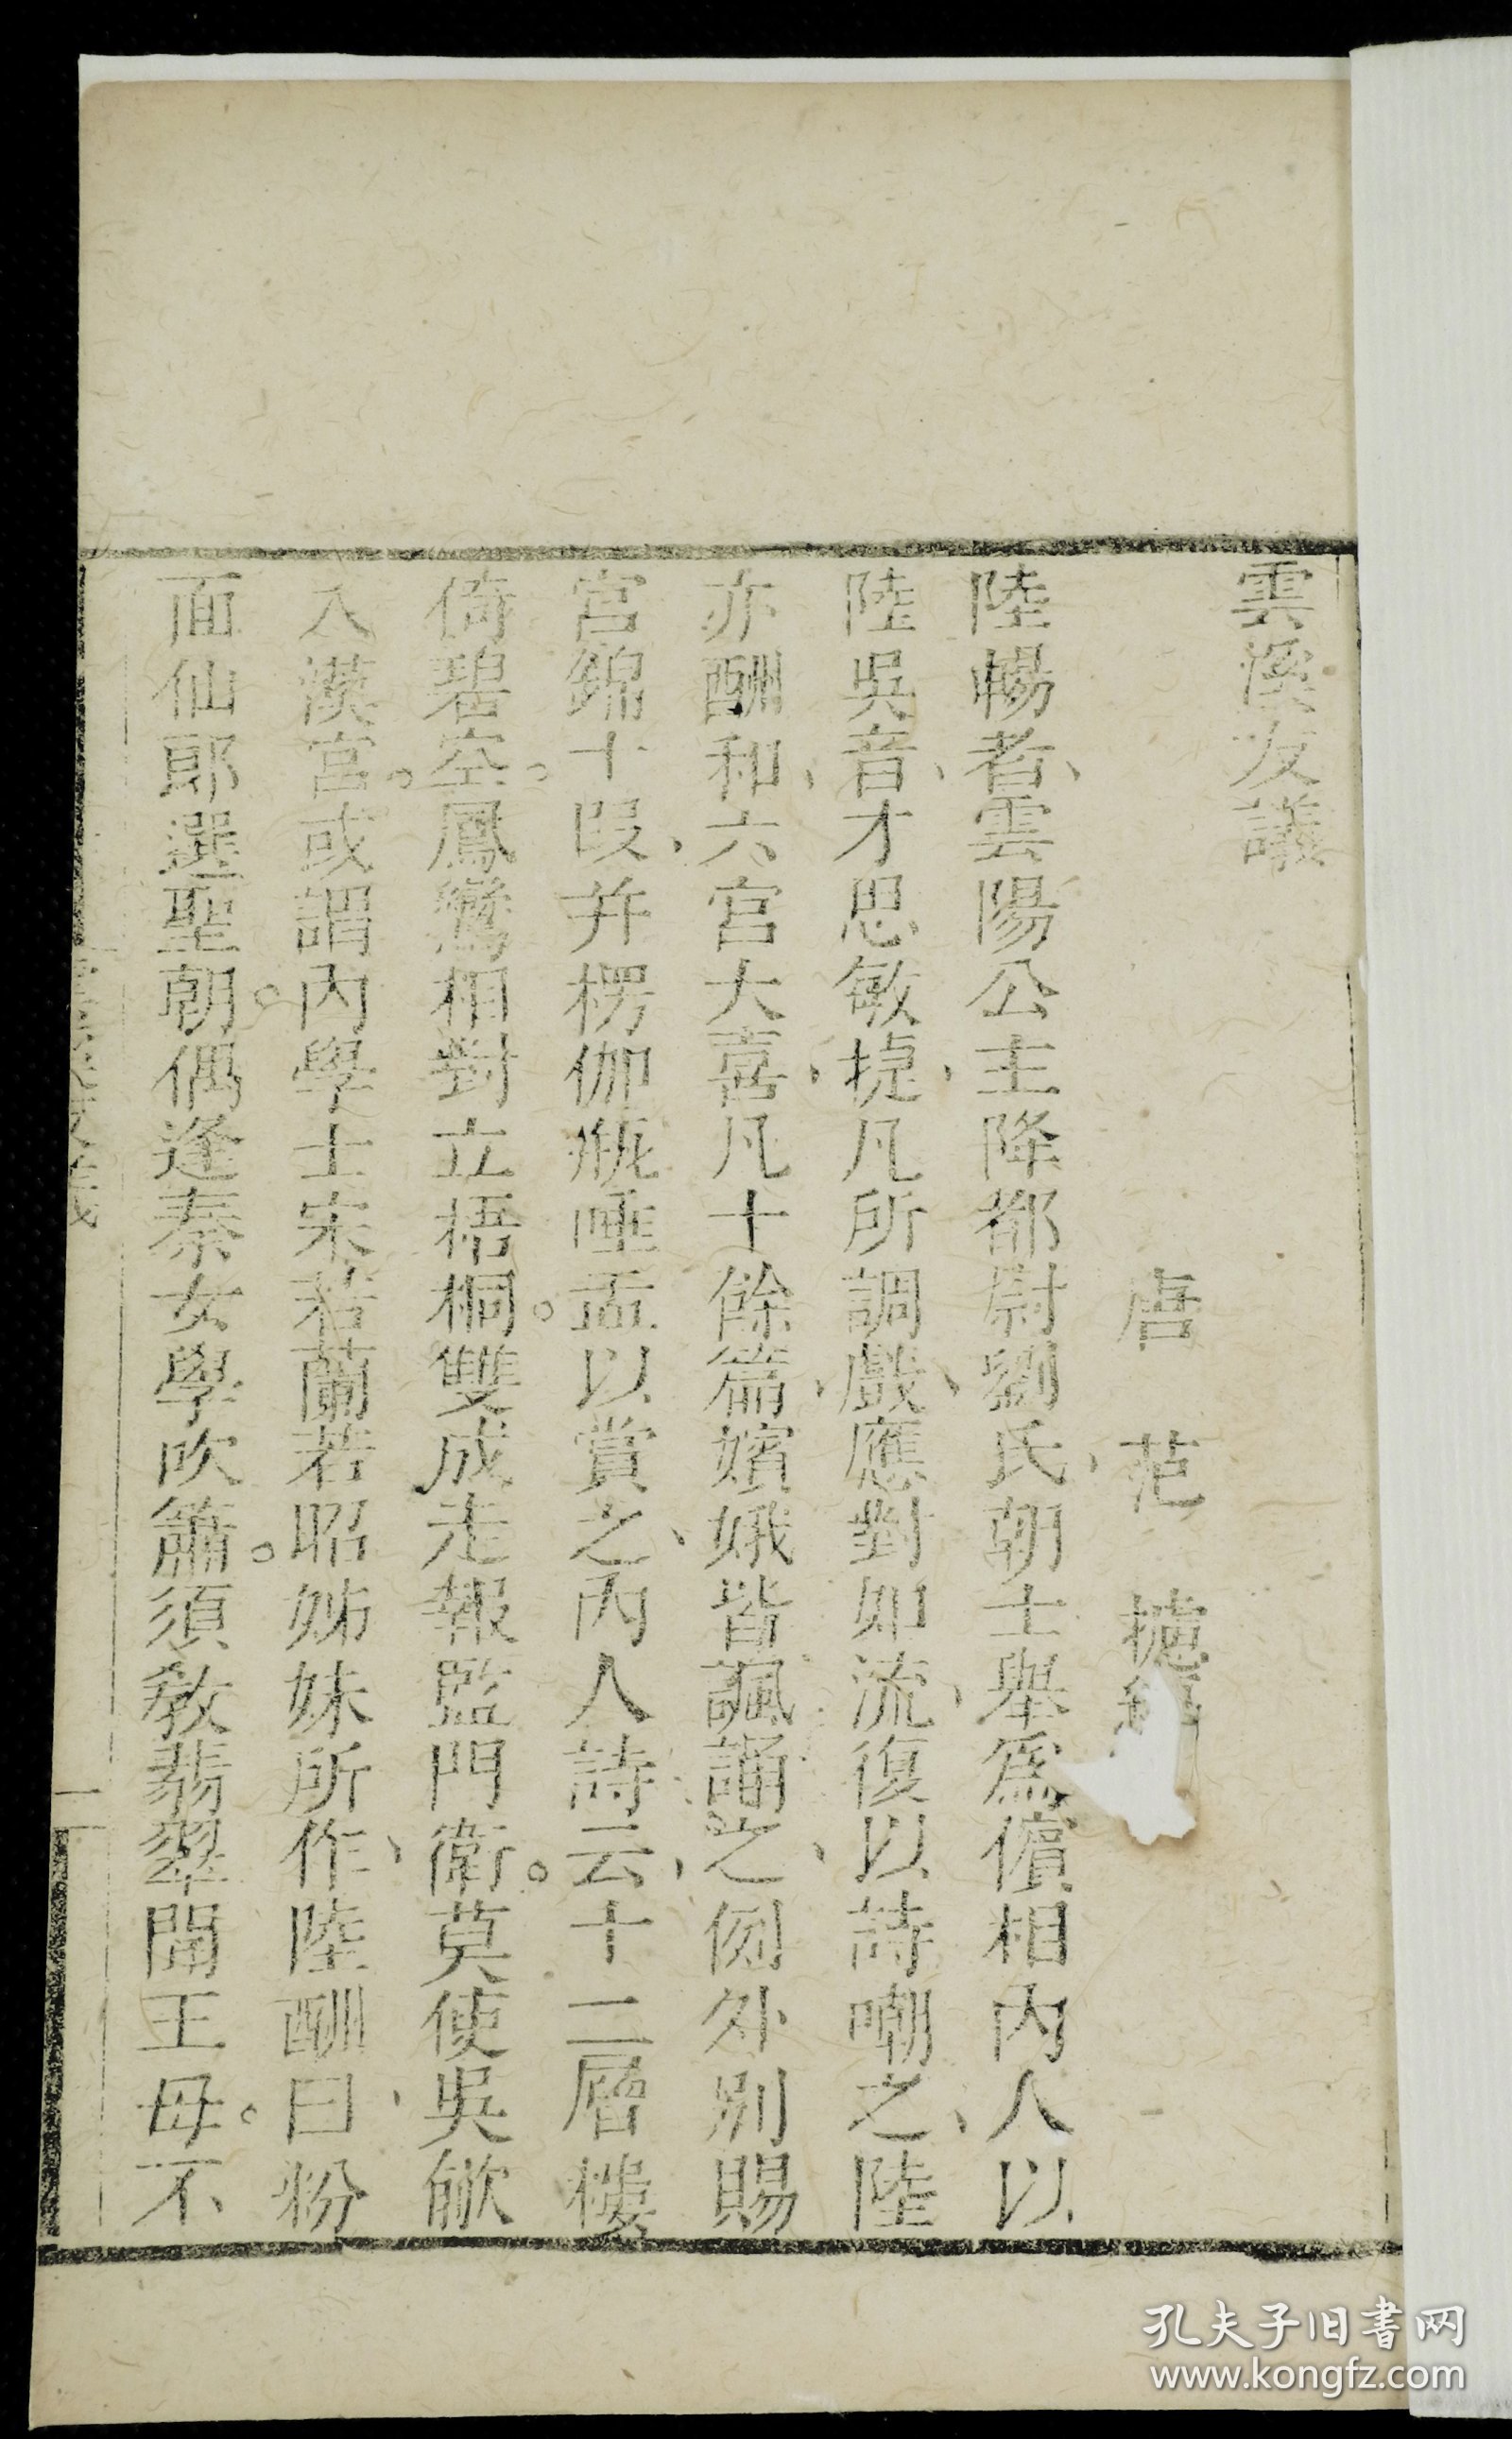 雲溪友議
唐 范 攄
陸暢者、雲陽公主降都尉劉氏、朝士舉爲儐相內人以
陸吳音、才思敏捷、凡所調戲、應對如流、復以詩嘲之、陸
亦酬和、六宮大喜、凡十餘篇、嬪娥皆諷誦之、例外別賜
宮錦十段、并楞伽瓶唾盂以賞之、內人詩云、十二層樓
倚碧空。鳳鸞相對立梧桐。雙成走報監門衛。莫使吳歈
入漢宮。或謂內學士宋若蘭若昭姊妹所作、陸酬曰、粉
面仙郎選聖朝。偶逢秦女學吹簫。須教翡翠聞王母。不
一
孔夫子旧书网
www.kongfz.com